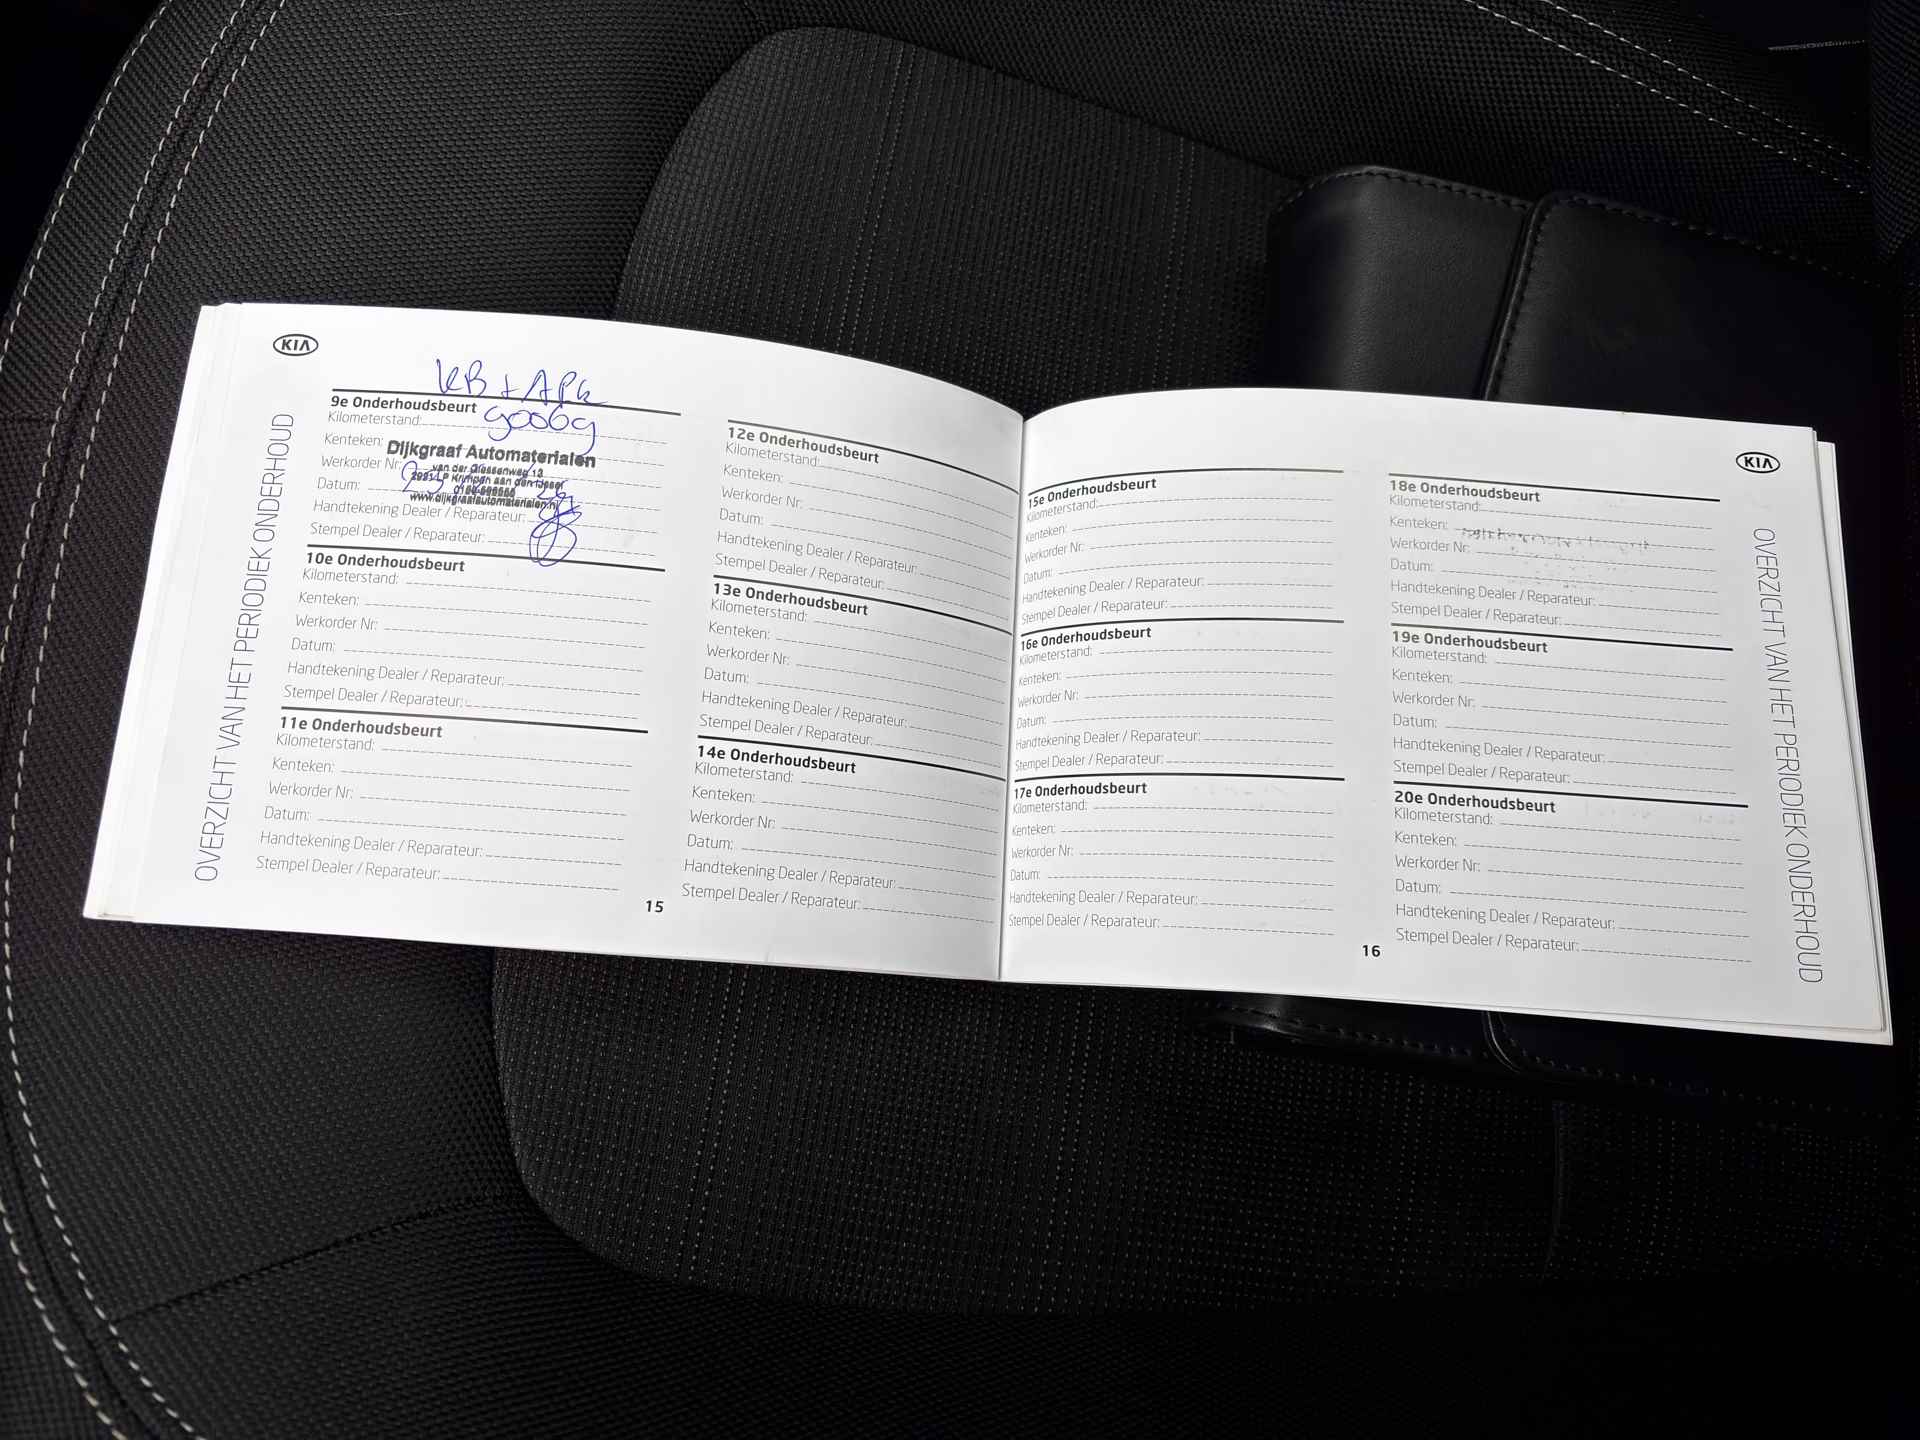 KIA
OVERZICHT VAN HET PERIODIEK ONDERHOUD
KB + APK
9e Onderhoudsbeurt
Kilometerstand: 90069
Kenteken:
Dijkgraaf Automaterialen
van der Giessenweg 13
Werkorder Nr:
2921 LP Krimpen aan den IJssel
Datum:
www.dijkgraafautomaterialen.nl
Handtekening Dealer / Reparateur:
Stempel Dealer / Reparateur:
10e Onderhoudsbeurt
Kilometerstand:
Kenteken:
Werkorder Nr:
Datum:
Handtekening Dealer / Reparateur:
Stempel Dealer / Reparateur:
11e Onderhoudsbeurt
Kilometerstand:
Kenteken:
Werkorder Nr:
Datum:
Handtekening Dealer / Reparateur:
Stempel Dealer / Reparateur:
12e Onderhoudsbeurt
Kilometerstand:
Kenteken:
Werkorder Nr:
Datum:
Handtekening Dealer / Reparateur:
Stempel Dealer / Reparateur:
13e Onderhoudsbeurt
Kilometerstand:
Kenteken:
Werkorder Nr:
Datum:
Handtekening Dealer / Reparateur:
Stempel Dealer / Reparateur:
14e Onderhoudsbeurt
Kilometerstand:
Kenteken:
Werkorder Nr:
Datum:
Handtekening Dealer / Reparateur:
Stempel Dealer / Reparateur:
15
15e Onderhoudsbeurt
Kilometerstand:
Kenteken:
Werkorder Nr:
Datum:
Handtekening Dealer / Reparateur:
Stempel Dealer / Reparateur:
16e Onderhoudsbeurt
Kilometerstand:
Kenteken:
Werkorder Nr:
Datum:
Handtekening Dealer / Reparateur:
Stempel Dealer / Reparateur:
17e Onderhoudsbeurt
Kilometerstand:
Kenteken:
Werkorder Nr:
Datum:
Handtekening Dealer / Reparateur:
Stempel Dealer / Reparateur:
KIA
18e Onderhoudsbeurt
Kilometerstand:
Kenteken:
Werkorder Nr:
Datum:
Handtekening Dealer / Reparateur:
Stempel Dealer / Reparateur:
19e Onderhoudsbeurt
Kilometerstand:
Kenteken:
Werkorder Nr:
Datum:
Handtekening Dealer / Reparateur:
Stempel Dealer / Reparateur:
20e Onderhoudsbeurt
Kilometerstand:
Kenteken:
Werkorder Nr:
Datum:
Handtekening Dealer / Reparateur:
Stempel Dealer / Reparateur:
16
OVERZICHT VAN HET PERIODIEK ONDERHOUD